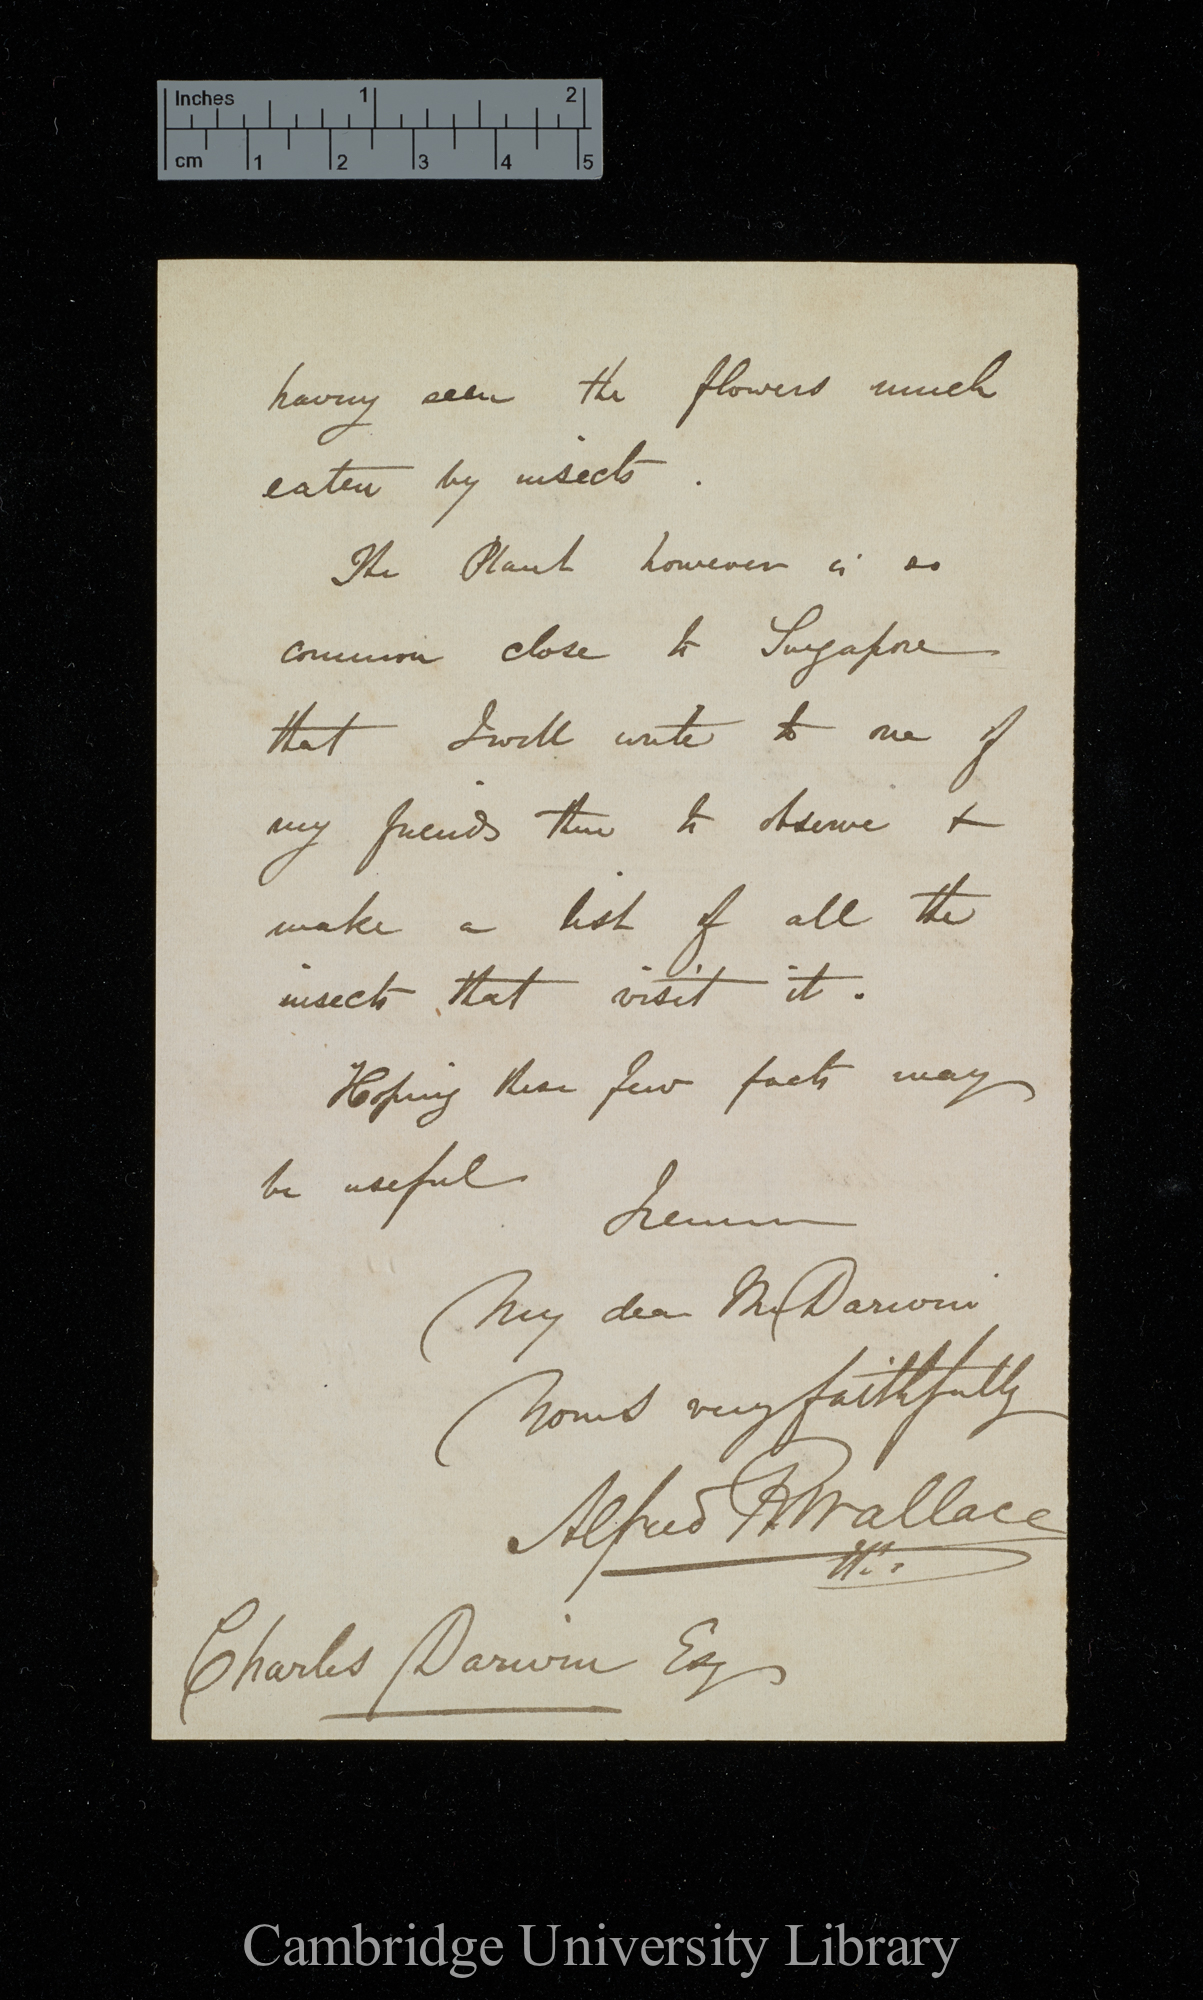 Inches 1 2
cm 1 2 3 4 5
having seen the flowers much
eaten by insects.
The Plant however is so
common close to Singapore
that I will write to one of
my friends there to observe &
make a list of all the
insects that visit it.
Hoping these few facts may
be useful
I remain
My dear Mr Darwin
Yours very faithfully
Alfred R Wallace
Charles Darwin Esq
Cambridge University Library